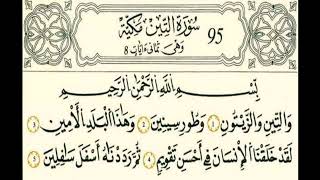 سُورَةُ التِّينِ مَكِّيَّة 95
وَهِيَ ثَمَانِي ءَايَات 8
بِسْمِ اللَّهِ الرَّحْمَٰنِ الرَّحِيمِ
وَالتِّينِ وَالزَّيْتُونِ ١ وَطُورِ سِينِينَ ٢ وَهَٰذَا الْبَلَدِ الْأَمِينِ ٣
لَقَدْ خَلَقْنَا الْإِنسَانَ فِي أَحْسَنِ تَقْوِيمٍ ٤ ثُمَّ رَدَدْنَاهُ أَسْفَلَ سَافِلِينَ ٥